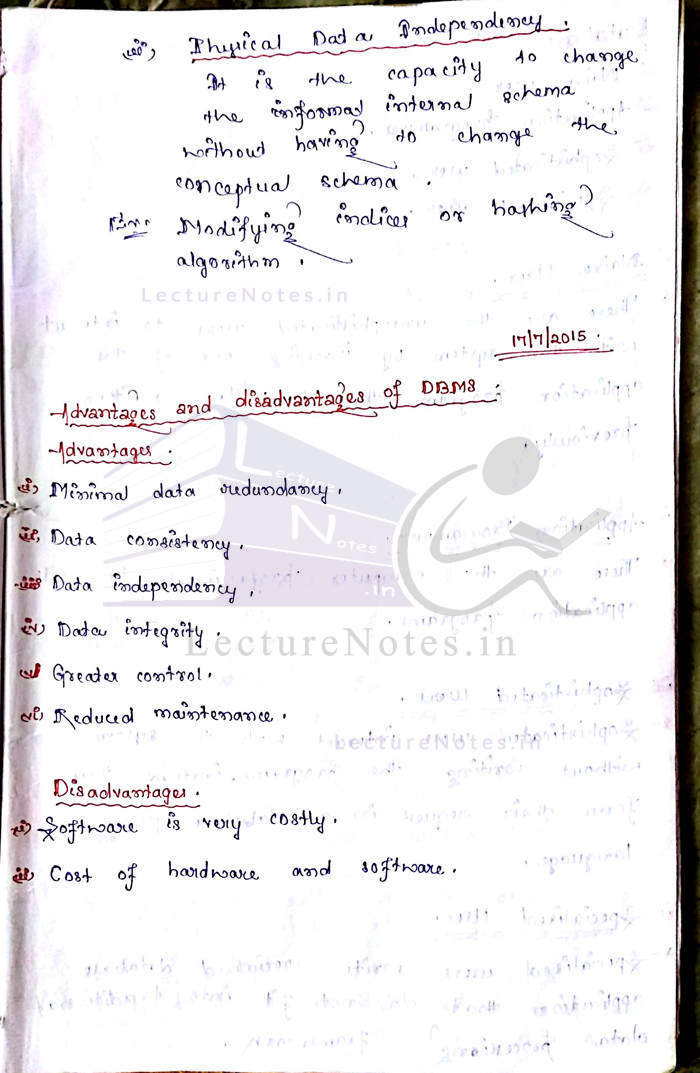 ii) Physical Data Independency :
It is the capacity to change
the informal internal schema
without having to change the
conceptual schema .
Ex:- Modifying indices or hashing
algorithm .
LectureNotes.in
17/7/2015 .
Advantages and disadvantages of DBMS :
Advantages .
i) Minimal data redundancy .
ii) Data consistency .
iii) Data independency .
iv) Data integrity .
v) Greater control .
vi) Reduced maintenance .
Lecture
Notes
.in
LectureNotes.in
LectureNotes.in
Disadvantages .
i) Software is very costly .
ii) Cost of hardware and software .